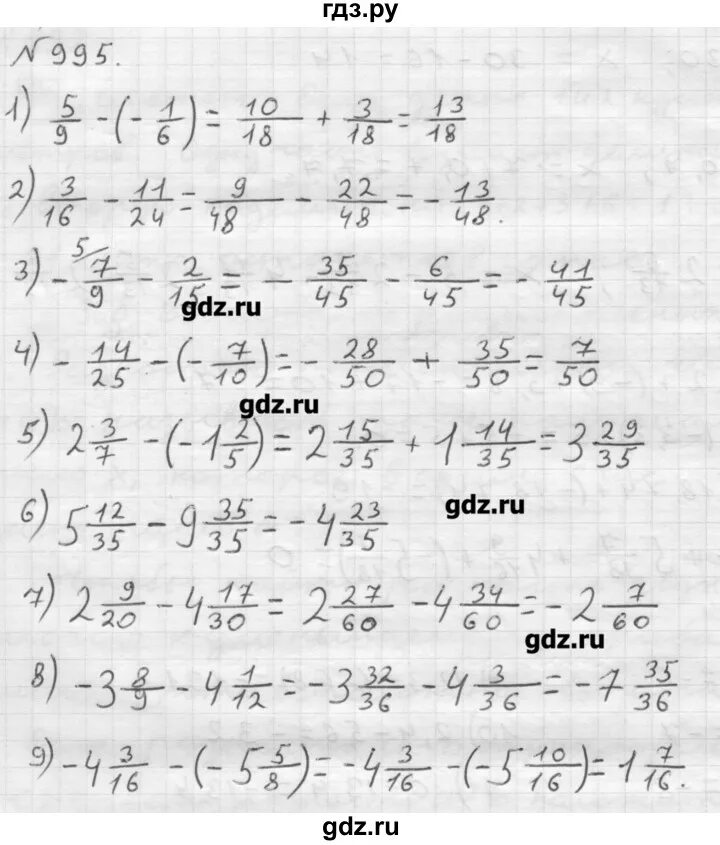 гдз.ру
№ 995.
1) 5/9 - (- 1/6) = 10/18 + 3/18 = 13/18
2) 3/16 - 11/24 = 9/48 - 22/48 = - 13/48.
3) - 5/ 7/9 - 2/15 = - 35/45 - 6/45 = - 41/45
gdz.ru
4) - 14/25 - (- 7/10) = - 28/50 + 35/50 = 7/50
gdz.ru
5) 2 3/7 - (-1 2/5) = 2 15/35 + 1 14/35 = 3 29/35
gdz.ru
6) 5 12/35 - 9 35/35 = -4 23/35
7) 2 9/20 - 4 17/30 = 2 27/60 - 4 34/60 = -2 7/60
gdz.ru
8) -3 8/9 - 4 1/12 = -3 32/36 - 4 3/36 = -7 35/36
9) -4 3/16 - (-5 5/8) = -4 3/16 - (-5 10/16) = 1 7/16.
gdz.ru